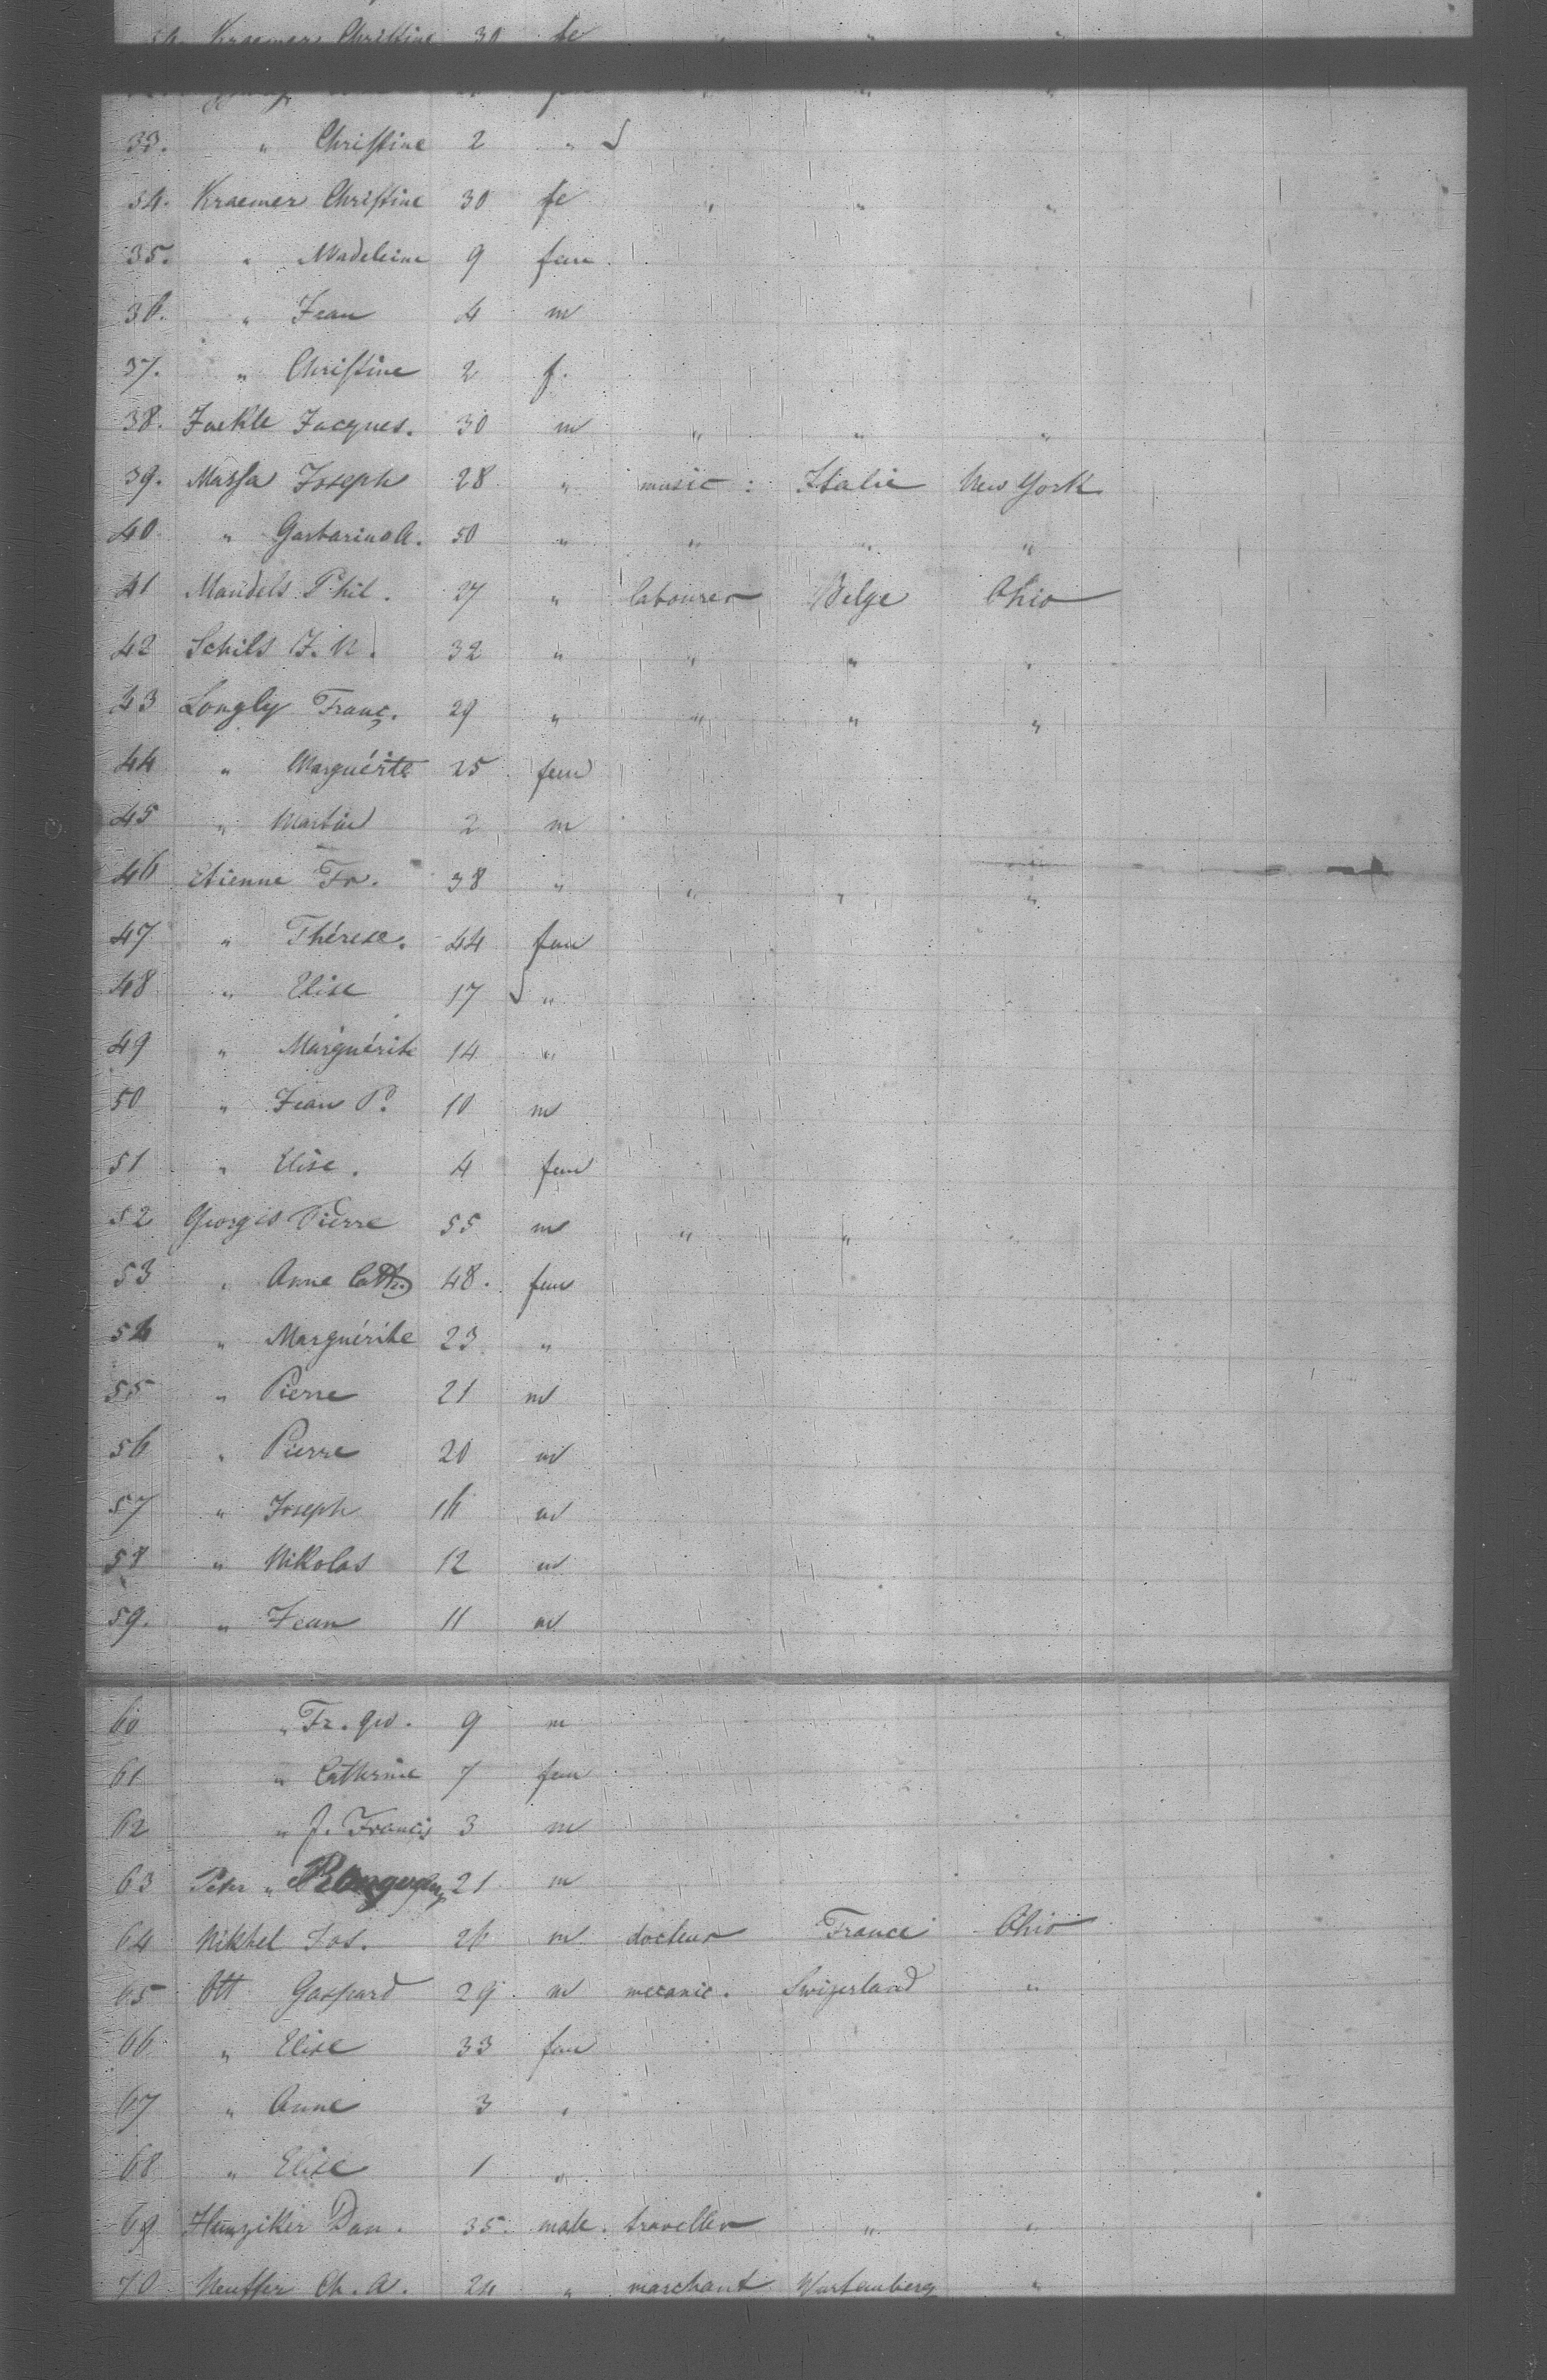 34. Kraemer Christine 30 fe " " "
33. " Christine 2 "
34. Kraemer Christine 30 fe " " "
35. " Madeleine 9 fem
36. " Jean 4 m
37. " Christine 2 f.
38. Jacques. 30 m " " "
39. Massa Joseph 28 " music : Italie New York
40 " 50 " " " "
41 Mandels Phil. 27 " labourer Belge Ohio
42 Schils J. N. 32 " " " "
43 Longly Franç. 29 " " " "
44 " Marguérite 25 fem
45 " Martin 2 m
46 Etienne Fr. 38 " " " "
47 " Thérese. 44 fem
48 " Elise 17 "
49 " Marguérite 14 "
50 " Jean P. 10 m
51 " Elise. 4 fem
52 Georgis Pierre 55 m " " "
53 " Anne Cath. 48. fem
54 " Marguérite 23 "
55 " Pierre 21 m
56 " Pierre 20 m
57 " Joseph 16 m
58 " Nikolas 12 m
59. " Jean 11 m
60 " Fr. 9 m
61 " Catherine 7 fem
62 " J. Francis 3 m
63 Peter " 21 m
64 Nikhel Jos. 26 m docteur France Ohio
65 Ott Gaspard 29 m mecanic. Swizerland "
66 " Elise 33 fem
67 " Anne 3 "
68 " Elise 1 "
69 Hunziker Dan. 35 male. traveller " "
70 Neuffer Ch. A. 24 " marchant Wurtemberg "